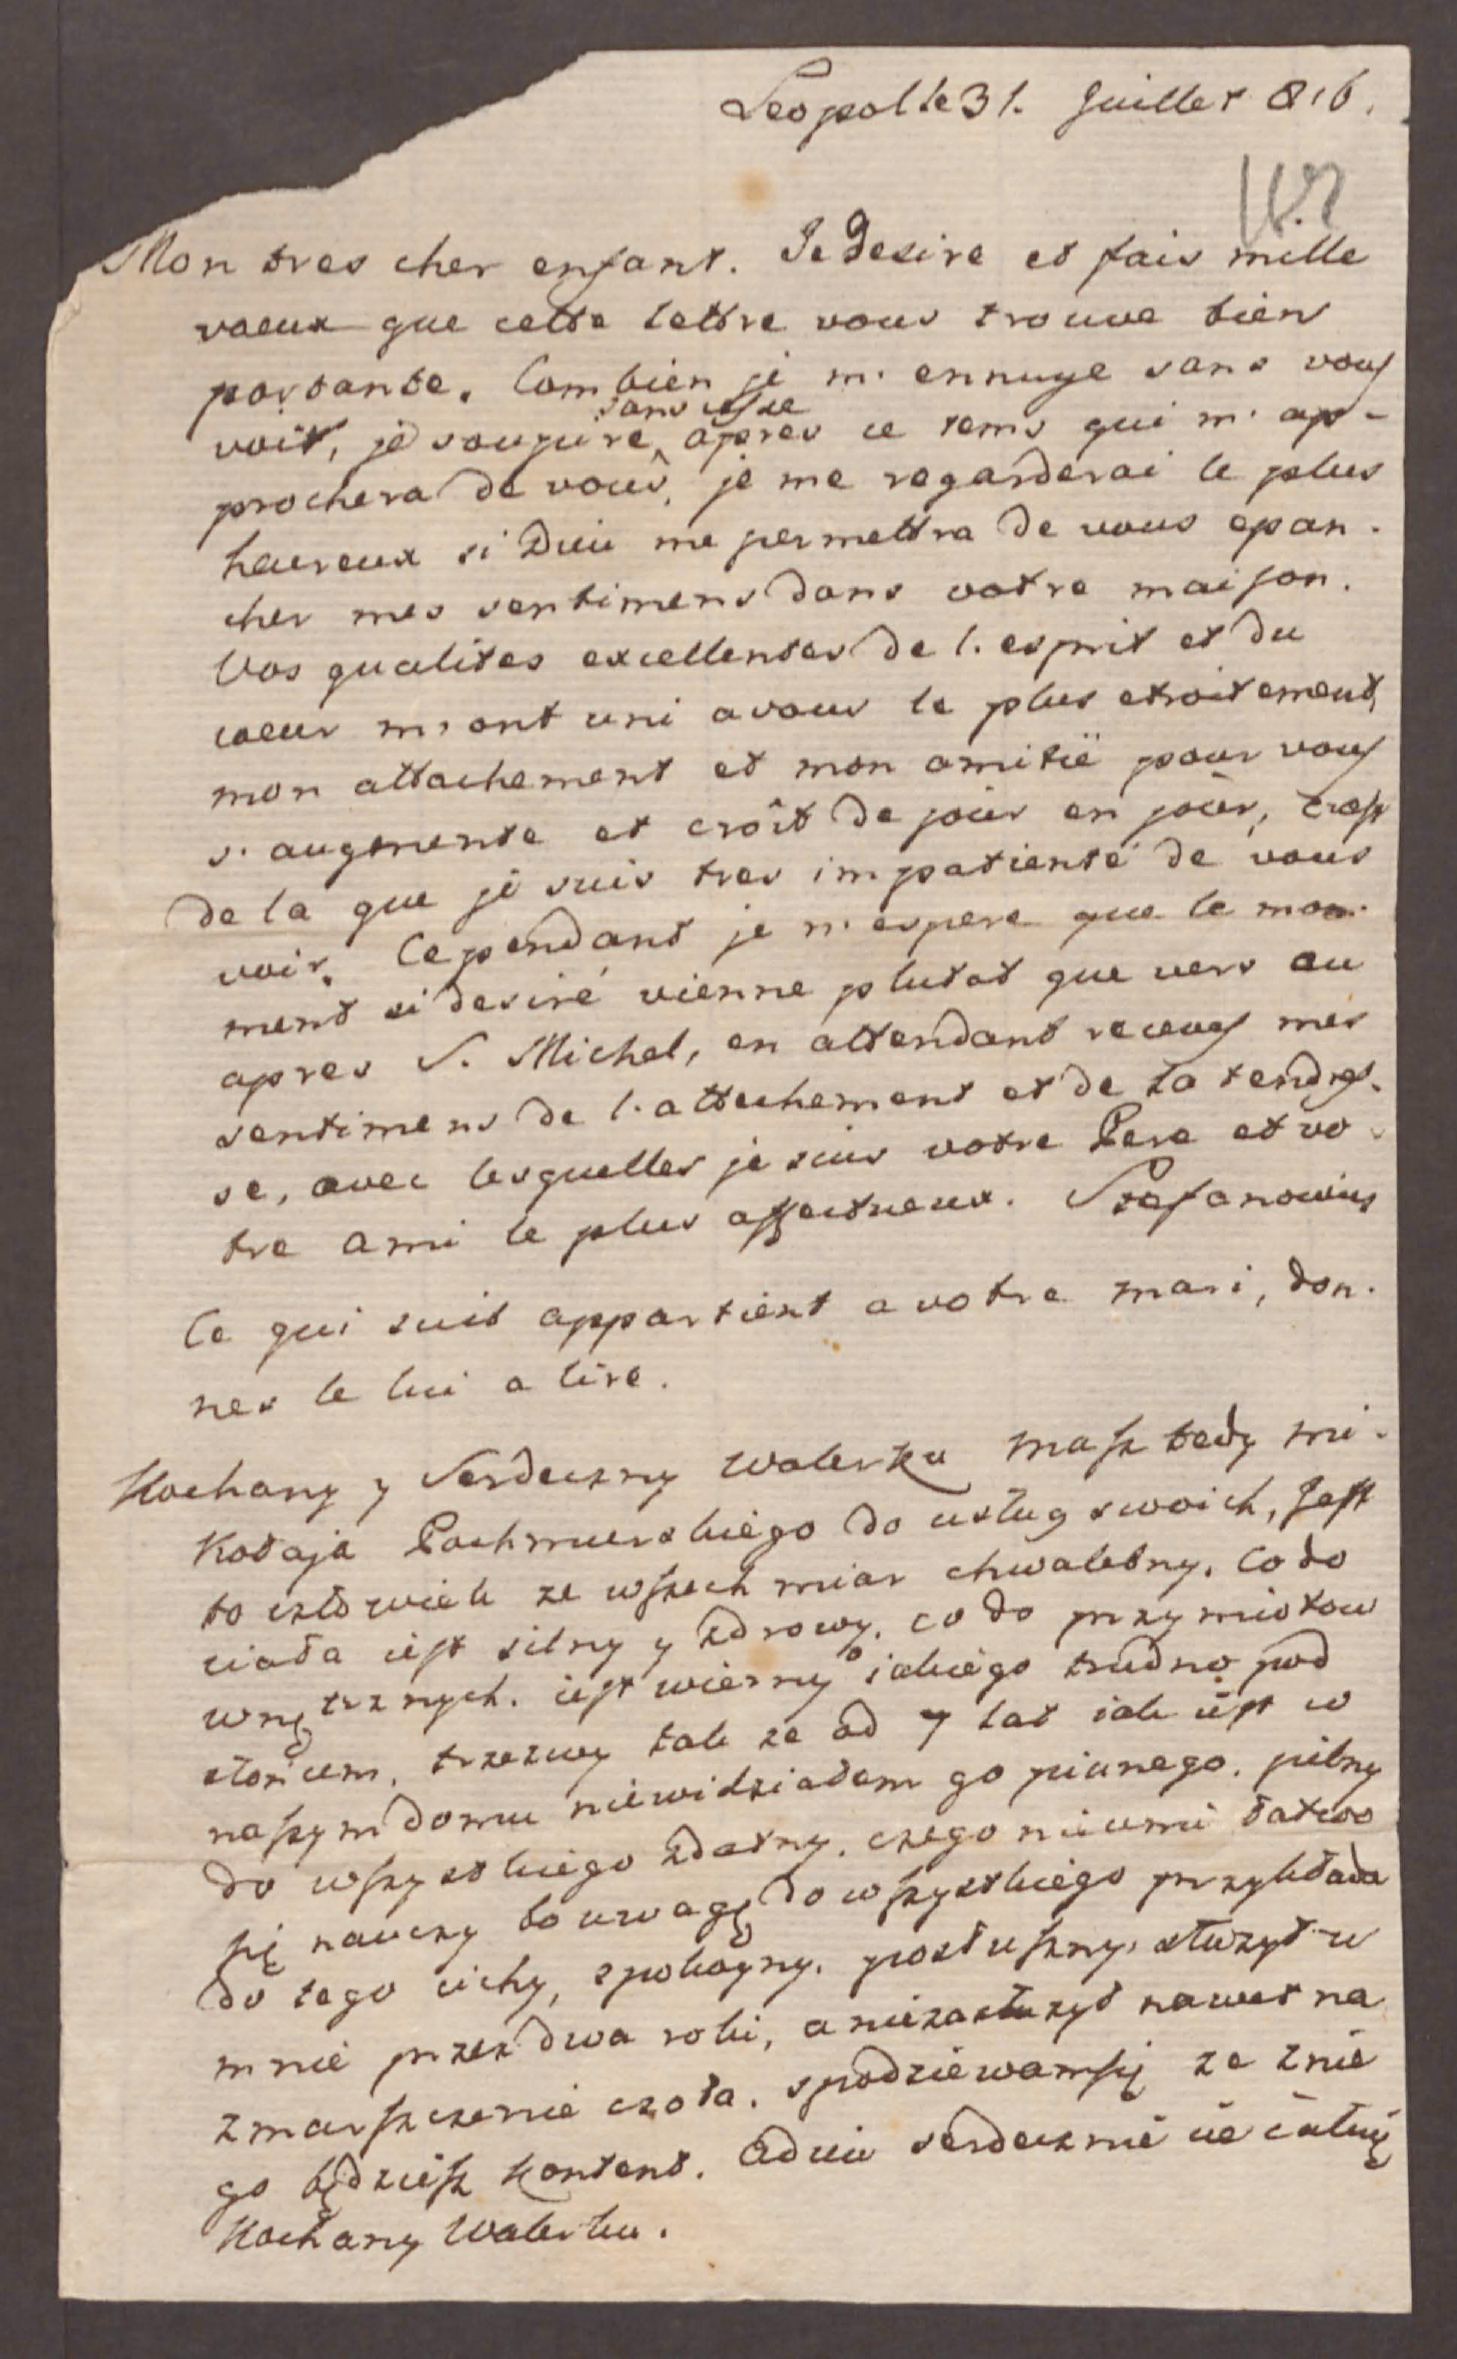 Leopol le 31. Juillet 816.
Mon tres cher enfant. Je desire et fais mille
vaeux que cette lettre vous trouve bien
portante. Combien je m'ennuye sans vous
voit, je soupire sans cesse apres ce tems qui m'ap-
prochera de vous, je me regarderai le plus
heureux si Dieu me permettra de vous epan-
cher mes sentimens dans votre maison.
Vos qualites excellentes de l'esprit et du
coeur m'ont uni a vous le plus etroitement,
mon attachement et mon amitié pour vous
s'augmente et croît de jour en jour, c'est
de la que je suis tres impatienté de vous
voir. Cependant je m'espere que le mo-
ment si desiré vienne plutot que vers au
apres S. Michel, en attendant recevez mes
sentimens de l'attachement et de la tendres-
se, avec lesquelles je suis votre Pere et vo-
tre ami le plus affectueux. Stefanowicz
Ce qui suit appartient a votre mari, don-
nes le lui a lire.
Kochany y Serdeczny Walerku masz tedy Mi-
kołaja do usług swoich, Jest
to człowiek ze wszech miar chwalebny. Co do
ciała iest silny y zdrowy. co do przymiotow
wnętrznych. iest wierny iakiego trudno pod
słońcem, trzezwy tak ze od 7 lat iak iest w
naszym domu niewidziałem go pianego. pilny
do wszystkiego zdatny. czego nieumie łatwo
się nauczy bo uwagę do wszystkiego przykłada
do tego cichy, spokoyny. posłuszny, służył u
mnie przez dwa roki, a niezasłużył nawet na
zmarszczenie czoła. spodziewamsię ze znie
go będziesz kontent. Adieu serdecznie cie całuię
Kochany Walerku.